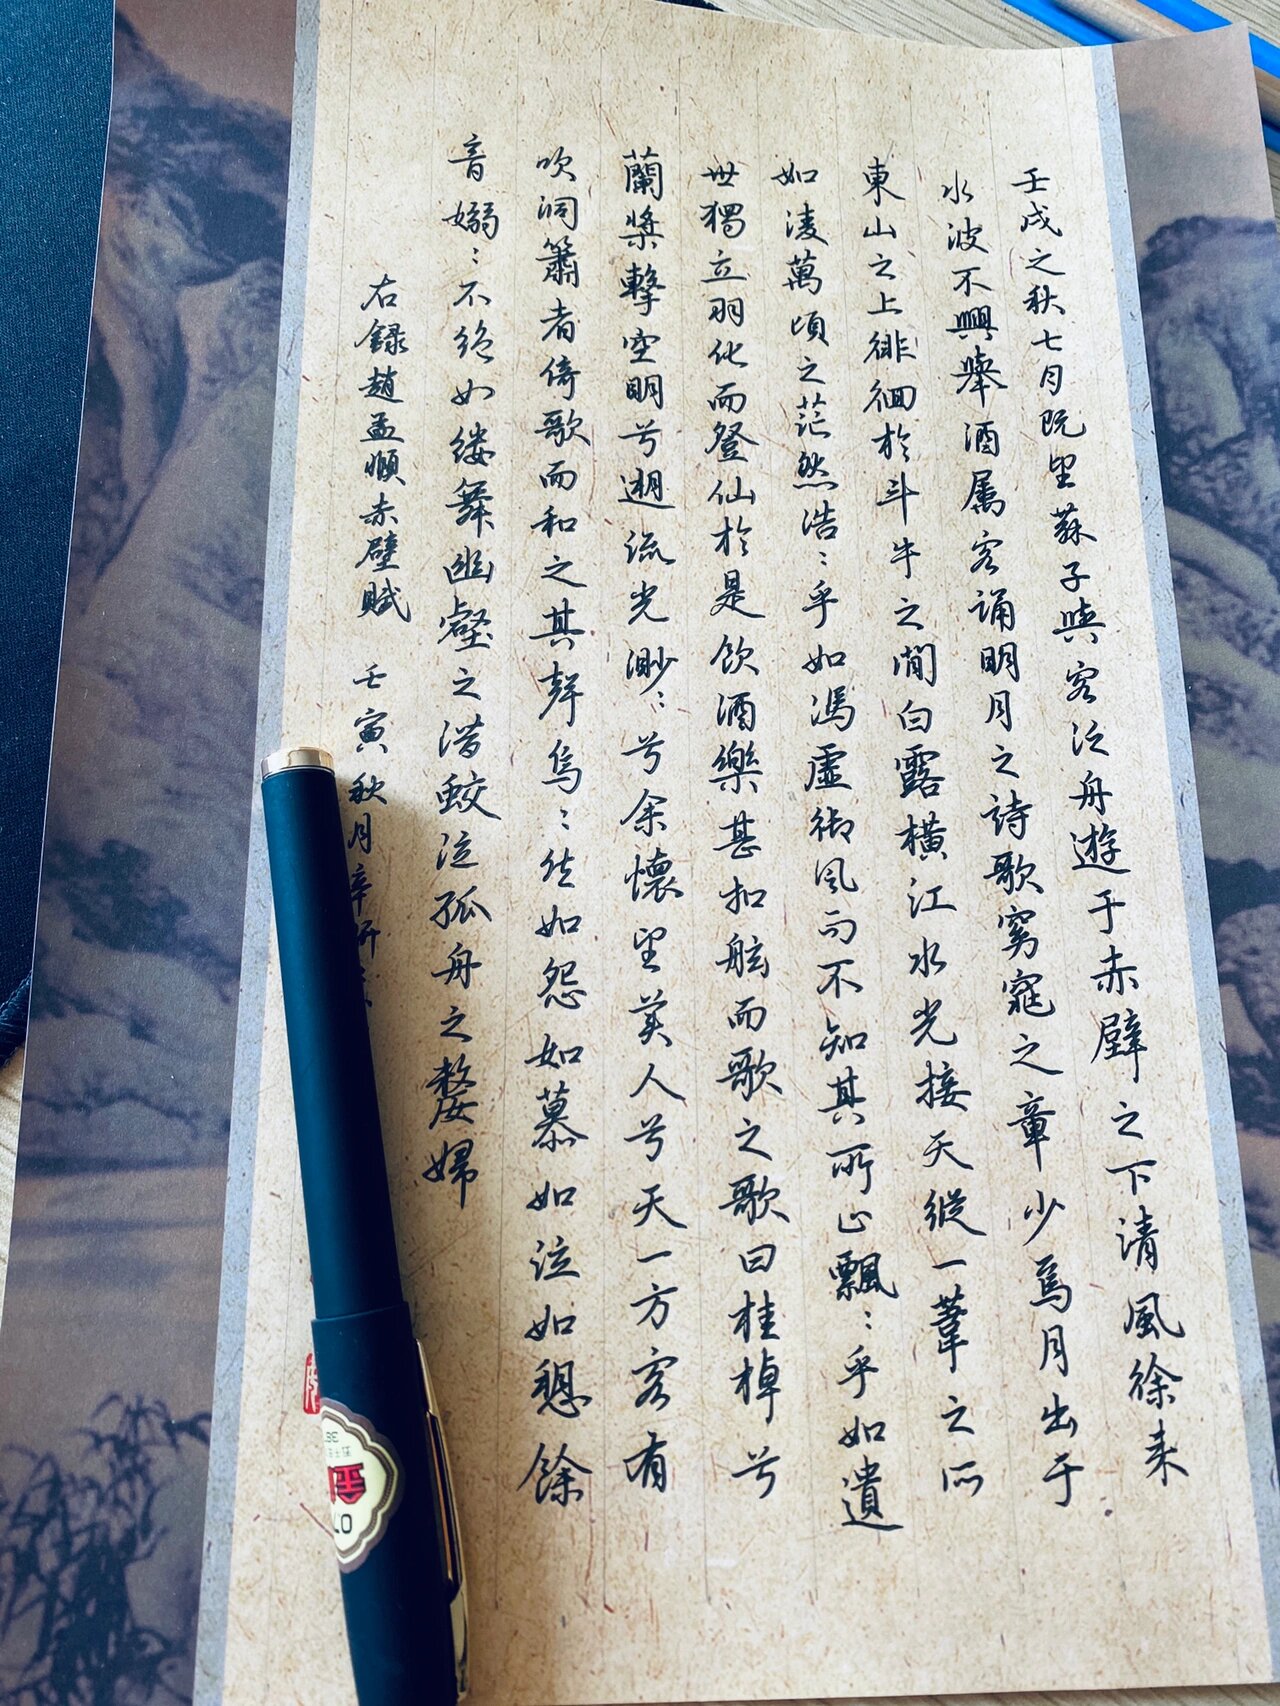 壬戌之秋七月既望蘇子與客泛舟遊于赤壁之下清風徐来
水波不興舉酒属客誦明月之詩歌窈窕之章少焉月出于
東山之上徘徊於斗牛之間白露橫江水光接天縱一葦之所
如淩萬頃之茫然浩:乎如馮虛御風而不知其所止飄:乎如遺
世獨立羽化而登仙於是飲酒樂甚扣舷而歌之歌曰桂棹兮
蘭槳擊空明兮遡流光渺:兮余懷望美人兮天一方客有
吹洞簫者倚歌而和之其聲烏:然如怨如慕如泣如愬餘
音嫋:不絕如縷舞幽壑之潛蛟泣孤舟之嫠婦
右録趙孟頫赤壁賦 壬寅秋月辛